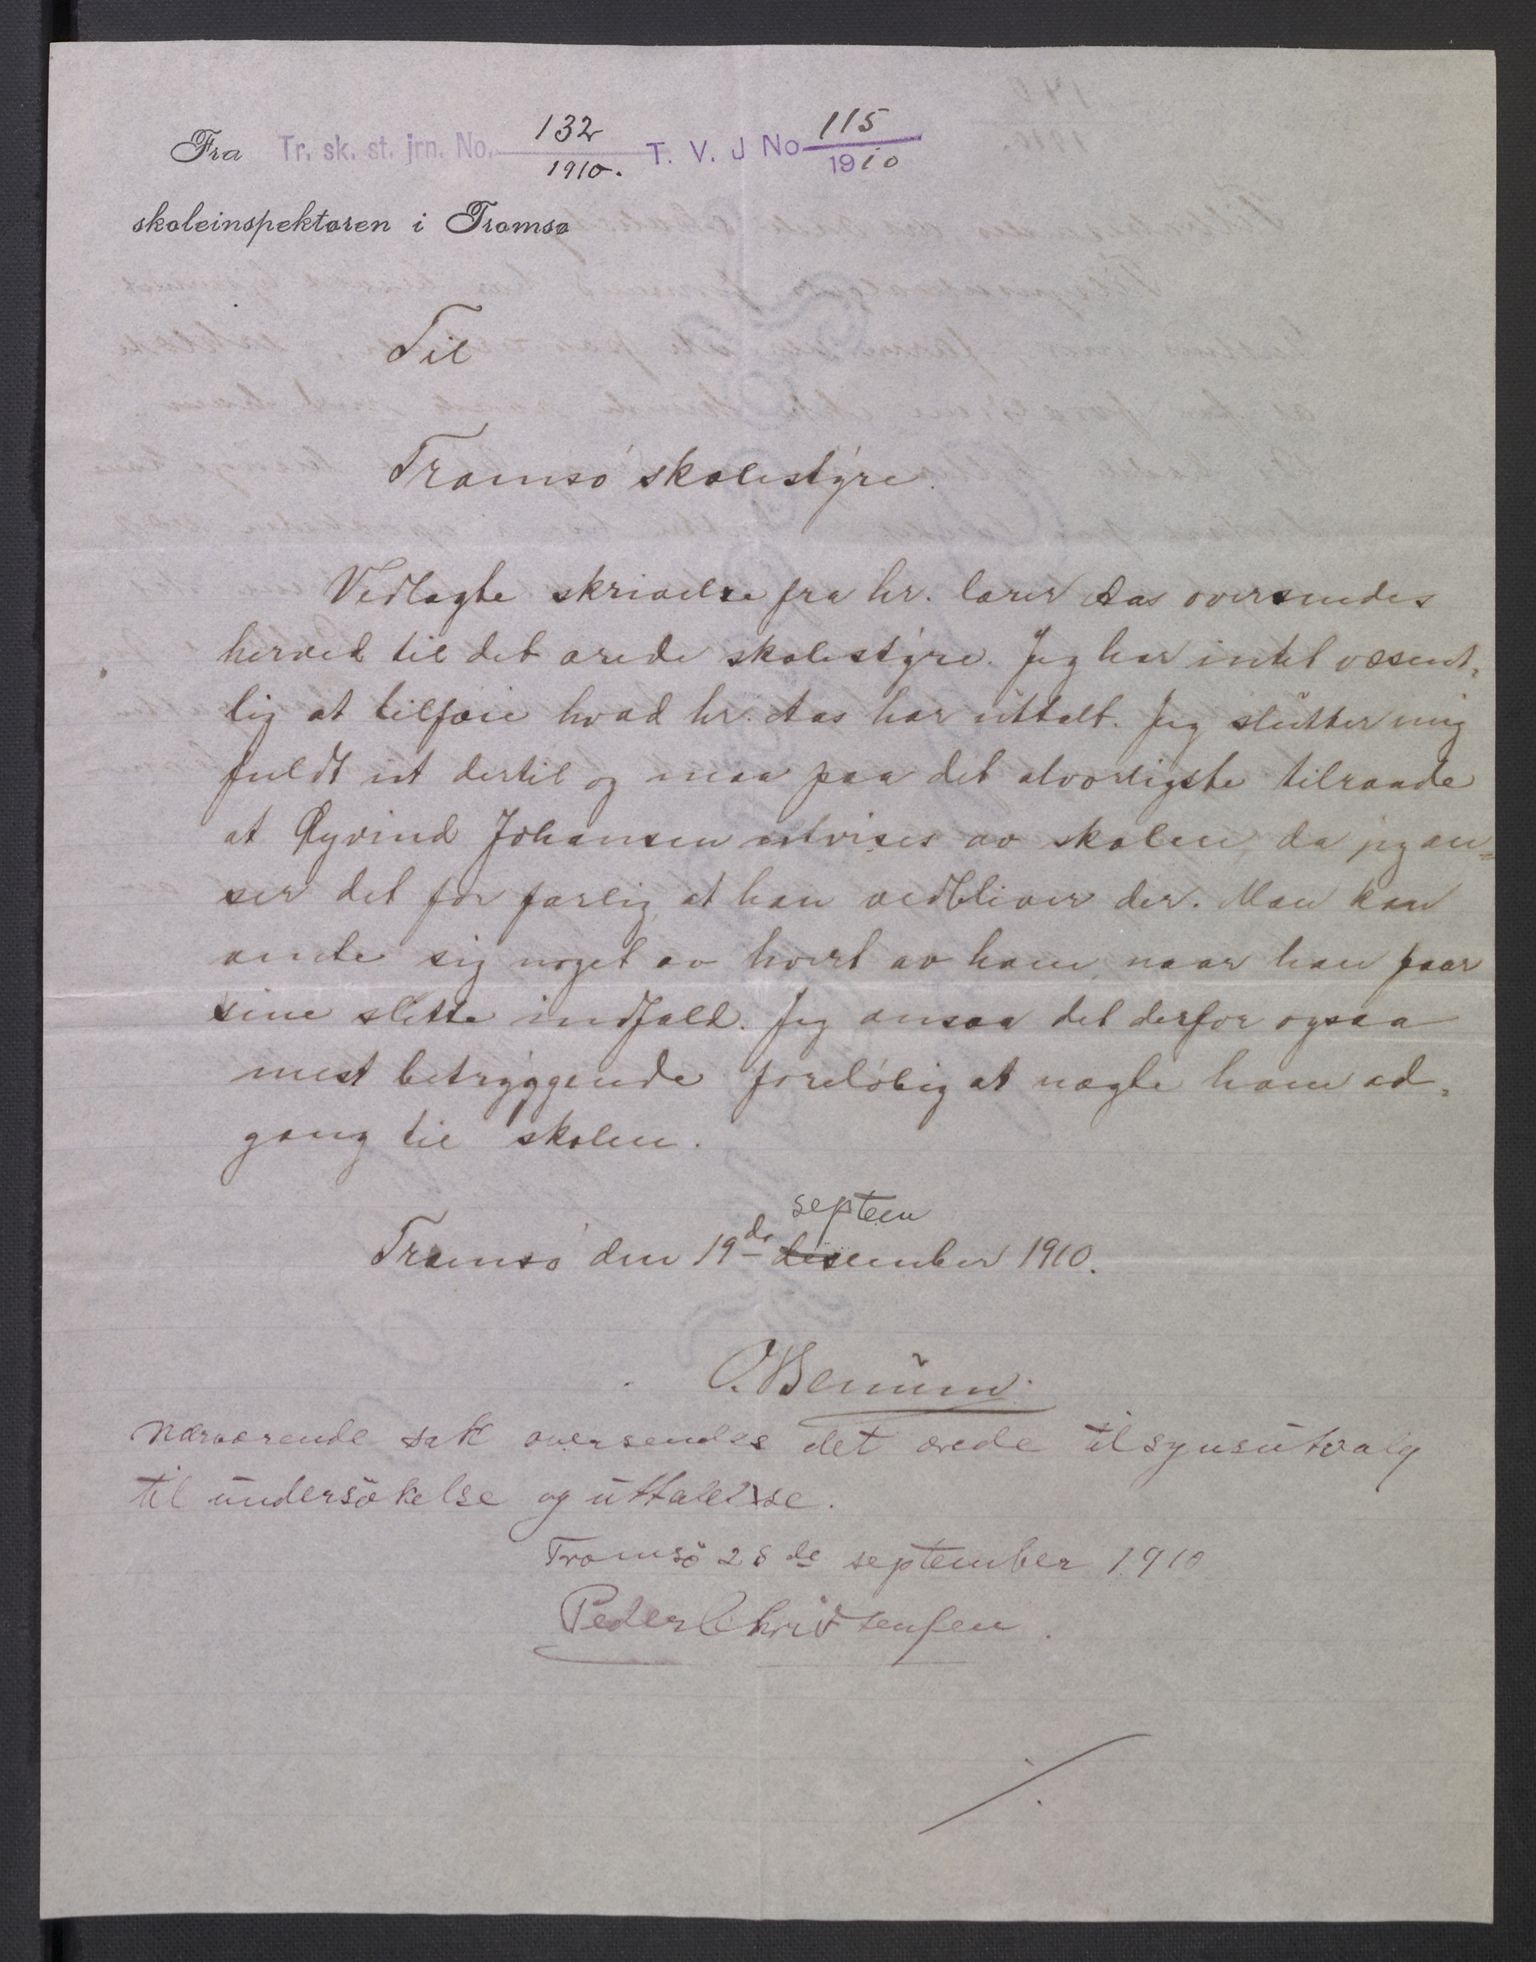 Fra Tr. sk. st. jrn. No. 132/1910. T. V. J No 115/1910
skoleinspektøren i Tromsø
Til
Tromsö skolestyre.
Vedlagte skrivelse fra hr. lærer Aas oversendes
herved til det ærede skolestyre. Jeg har intet væsent-
lig at tilføie hvad hr. Aas har uttalt. Jeg slutter mig
fuldt ut dertil og maa paa det alvorligste tilraade
at Øyvind Johansen utvises av skolen, da jeg an=
ser det for farlig, at han vedbliver der. Man kan
vente sig noget av hvert av ham, naar han faar
sine slette indfald. Jeg ansaa det derfor ogsaa
mest betryggende foreløbig at nægte ham ad-
gang til skolen.
septem
Tromsö den 19de desember 1910.
Nærværende sak oversendes det ærede tilsynsutvalg
til undersökelse og uttalelse.
Tromsö 28de september 1910
Peder Christensen.